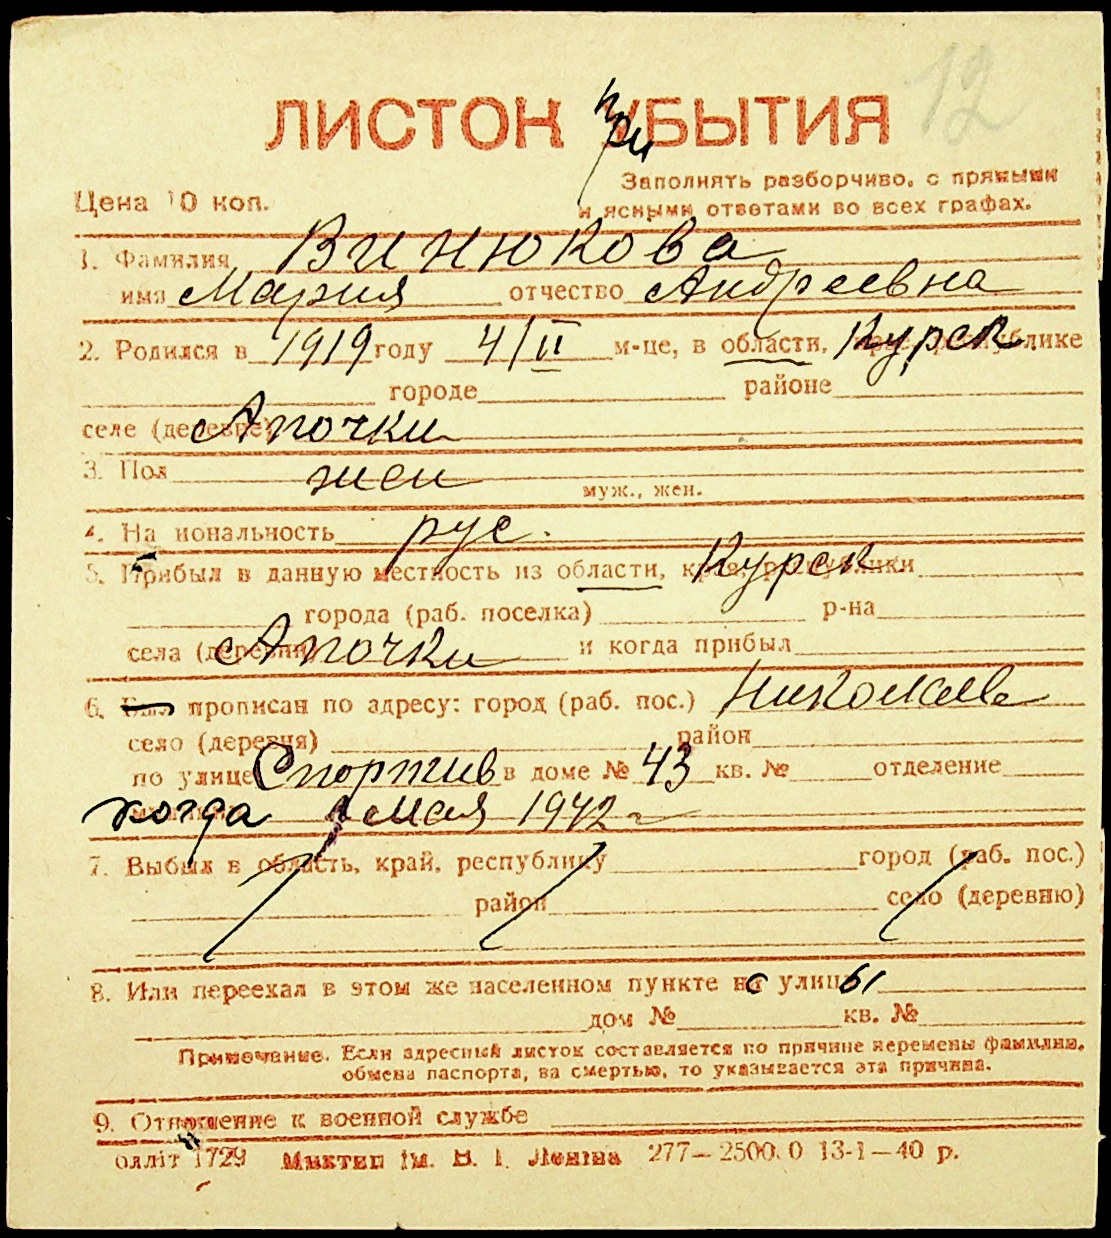 12
ЛИСТОК при УБЫТИЯ
Заполнять разборчиво, с прямыми
Цена 10 коп.
и ясными ответами во всех графах.
1. Фамилия Винюкова
имя Мария отчество Андреевна
2. Родился в 1919 году 4/II м-це, в области, Курск. республике
городе районе
селе (деревне) Апочки
3. Пол жен муж., жен.
4. Национальность рус.
5. Прибыл в данную местность из области, края, республики Курск
города (раб. поселка) р-на
села (деревни) Апочки и когда прибыл
6. Был прописан по адресу: город (раб. пос.) Николаев
село (деревня) район
по улице Спортив в доме № 43 кв. № отделение
когда 1 мая 1942 г
7. Выбыл в область, край, республику город (раб. пос.)
район село (деревню)
8. Или переехал в этом же населенном пункте с улицы
дом № кв. №
Примечание. Если адресный листок составляется по причине перемены фамилии,
обмена паспорта, за смертью, то указывается эта причина.
9. Отношение к военной службе
олліт 1729 Миктип ім. В. І. Леніна 277—2500.0 13-1—40 р.